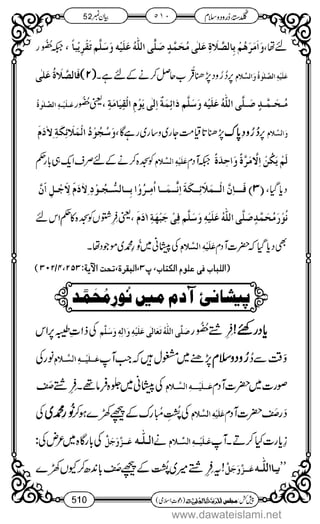 گلدستۂ دُرود و سلام ۵۱۰ بیان نمبر 52
لئے تھا، وَاَمَرَهُمْ بِالصَّلَاةِ عَلٰى مُحَمَّدٍ صَلَّى اللّٰهُ عَلَيْهِ وَسَلَّمَ تَقْرِيْباً ، جبکہ حُضُور
عَلَيْهِ الصَّلٰوةُ وَالسَّلَام پر دُرُود پڑھنا قُرب حاصل کرنے کے لئے ہے۔ (۲) فَالصَّلَاةُ عَلٰى
مُـحَـمَّـدٍ صَلَّى اللّٰهُ عَلَيْهِ وَسَلَّمَ دَائِمَةٌ اِلٰى يَوْمِ الْقِيَامَةِ ، یعنی حُضُور عَلَيْهِ الصَّلٰوةُ
وَالسَّلَام پر دُرُودِ پاک پڑھا جانا تاقیامت جاری وساری رہے گا، وَسُجُوْدُ الْمَلَائِكَةِ لِآدَمَ
لَمْ يَكُنْ اِلَّا مَرَّةً وَاحِدَةً جبکہ آدم عَلَيْهِ السَّلَام کو سجدہ کرنے کے لئے صرف ایک ہی بار حکم
دیا گیا، (۳) فَـــاِنَّ الْمَـــلَائِـــكَــةَ اِنَّـــمَـــا اُمِـــرُوْا بِـــالسُّـــجُـــوْدِ لِآدَمَ لِاَجَـــلِ اَنْ
نُوْرَ مُحَمَّدٍ صَلَّى اللّٰهُ عَلَيْهِ وَسَلَّمَ فِىْ جَبْهَةِ آدَمَ ، یعنی فرشتوں کو سجدہ کا حکم اس لئے
بھی دیا گیا کہ حضرتِ آدم عَلَيْهِ السَّلَام کی پیشانی میں نُورِ محمدی موجود تھا۔
(اللباب فی علوم الکتاب، پ۳، البقرة، تحت الآیة: ۲۵۳، ۴/ ۳۰۲)
پیشانیٔ آدم میں نُورِ مُحَمَّدَ
یاد رکھئے! فرشتے حُضُور صَلَّى اللّٰهُ تَعَالٰى عَلَيْهِ وَاٰلِهٖ وَسَلَّمَ کی ذاتِ طیبہ پر اس
وَقت سے دُرُود و سلام پڑھنے میں مشغول ہیں کہ جب آپ عَـلَـيْـهِ السَّلَام کی نور کی
صورت میں حضرتِ آدم عَـلَـيْـهِ السَّلَام کی پیشانی میں جلوہ فرما تھے۔ فرشتے صف
دَر صَف حضرتِ آدم عَلَيْهِ السَّلَام کی پُشتِ مُبارک کے پیچھے کھڑے ہو کر نُورِ محمدی کی
زِیارت کیا کرتے۔ آپ عَـلَـيْـهِ السَّلَام نے اللّٰه عَزَّوَجَلَّ کی بارگاہ میں عرض کی :
”یا اللّٰه عَزَّوَجَلَّ! یہ فرشتے میری پُشت کے پیچھے صَف باندھ کر کیوں کھڑے
پیش کش: مجلس المدینۃ العلمیۃ (دعوتِ اسلامی) 510
www.dawateislami.net